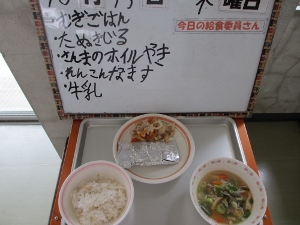 曜日
今日の給食委員さん
・むぎごはん
・たぬきじる
・さんまのホイルやき
・れんこんなます
・牛乳